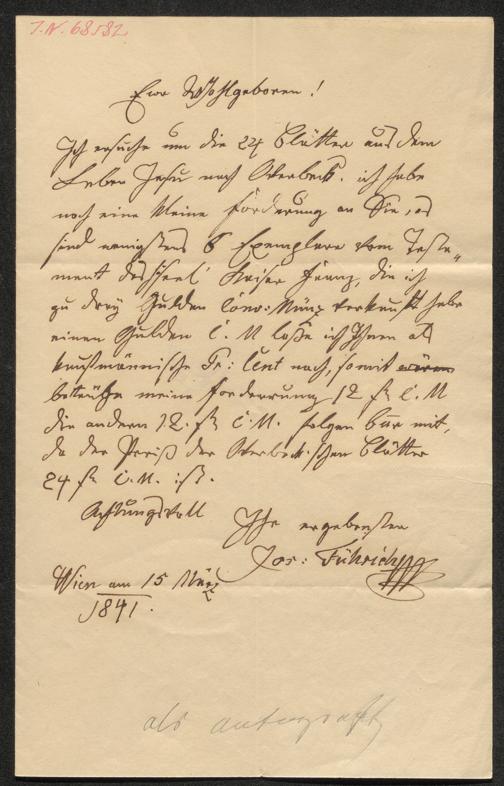 I.N. 68582
Euer Wohlgeboren!
Ich ersuche um die 24 Blätter aus dem
Leben Jesu nach Overbeck. ich habe
noch eine kleine Forderung an Sie, es
sind wenigstens 6 Exemplare vom Testa„
ment des seel: Kaiser Franz, die ich
zu drey Gulden Conv: Münz verkauft habe
einen Gulden C. M laße ich Ihnen als
kaufmännische Pr: Cent nach, somit wären
beträgt meine Forderung 12 fl C. M
die andern 12. fl C. M. folgen bar mit,
da der Preiß der Overbeck'schen Blätter
24 fl C. M. ist.
Achtungsvoll
Ihr ergebenster
Jos: Führich
Wien am 15 März
1841.
als autograph